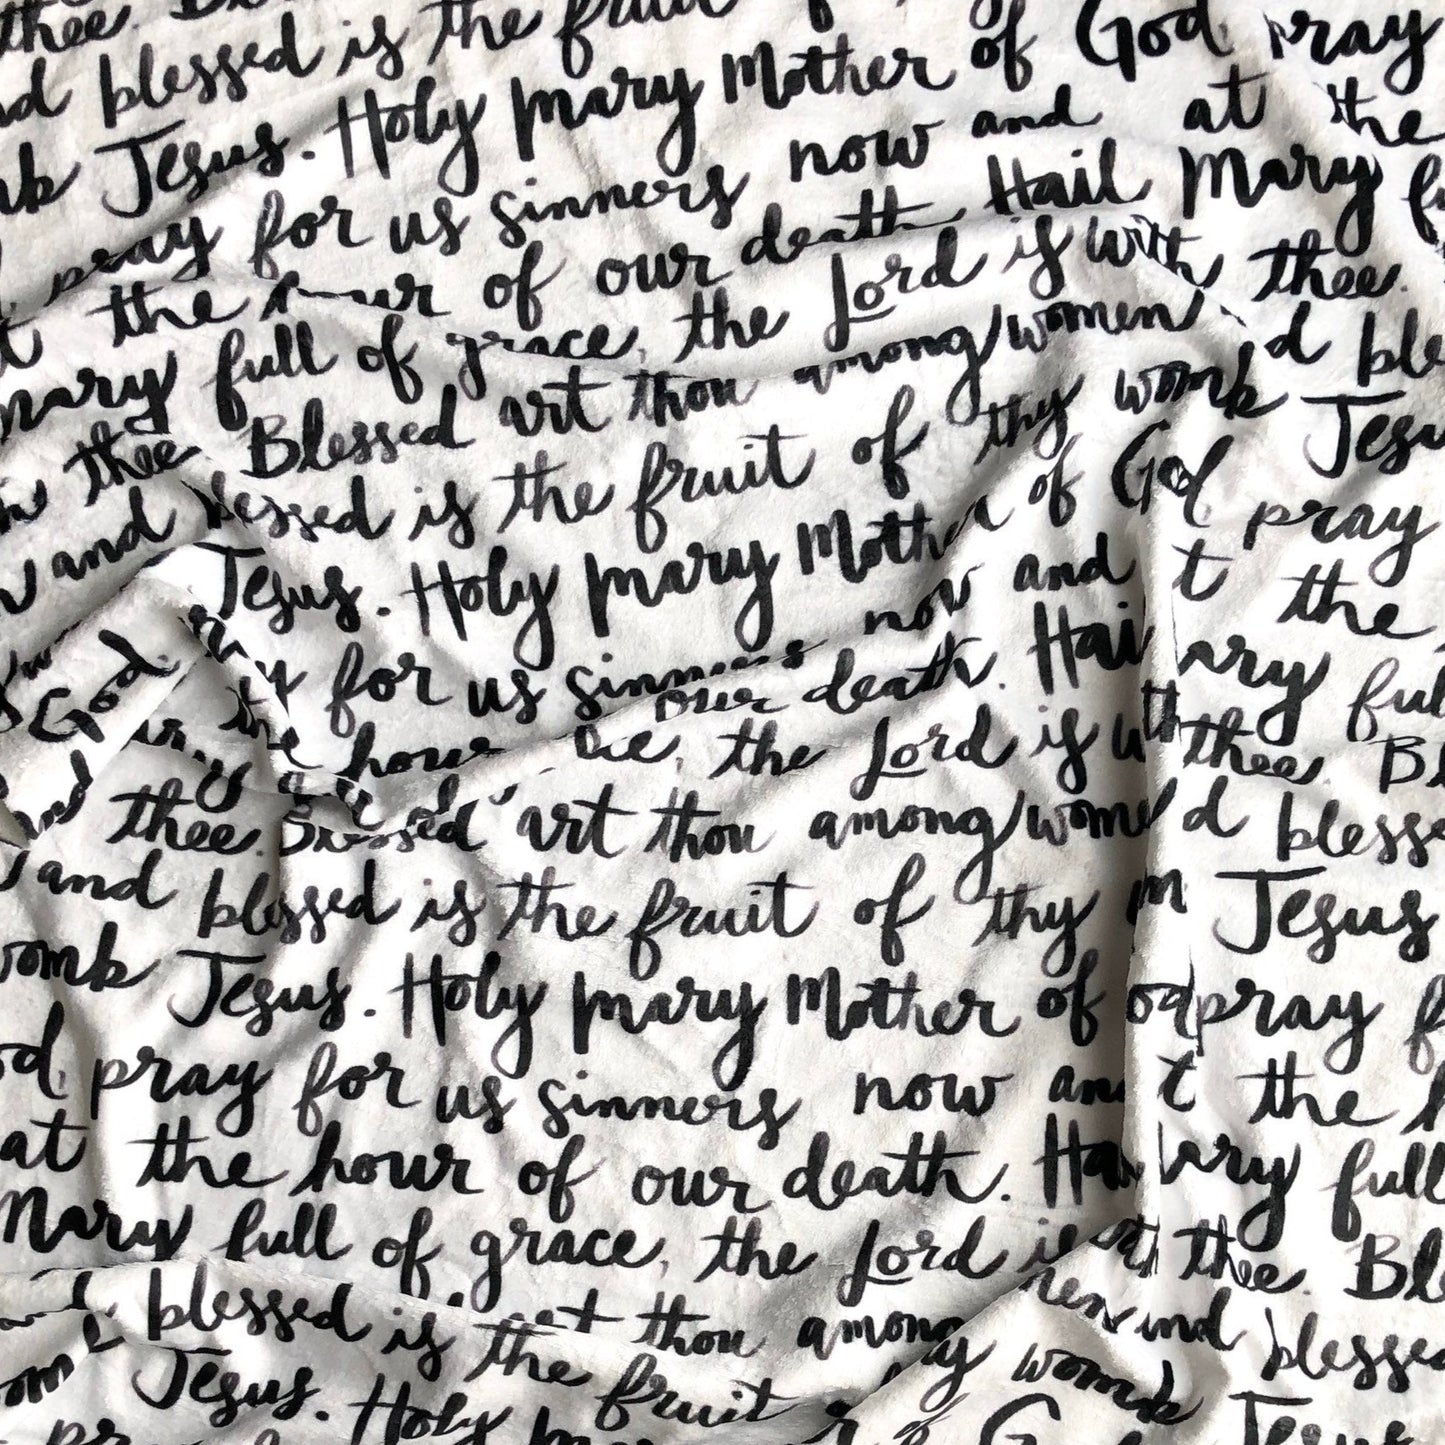 thee.
blessed is the fruit
Jesus. Holy Mary Mother of God, pray
pray for us sinners now and at the
the hour of our death. Hail Mary
Mary full of grace, the Lord is with thee.
thee Blessed art thou among women
and blessed is the fruit of thy womb Jesus
Jesus. Holy Mary Mother of God, pray
for us sinners now and the
the hour our death. Hail
the Lord is with thee.
thee. Blessed art thou among women blessed
and blessed is the fruit of thy Jesus
womb Jesus. Holy Mary Mother of pray
pray for us sinners now and the
at the hour of our death. full
Mary full of grace, the Lord is thee.
blessed is the thou among blessed
Jesus. fruit womb Jesus
Holy